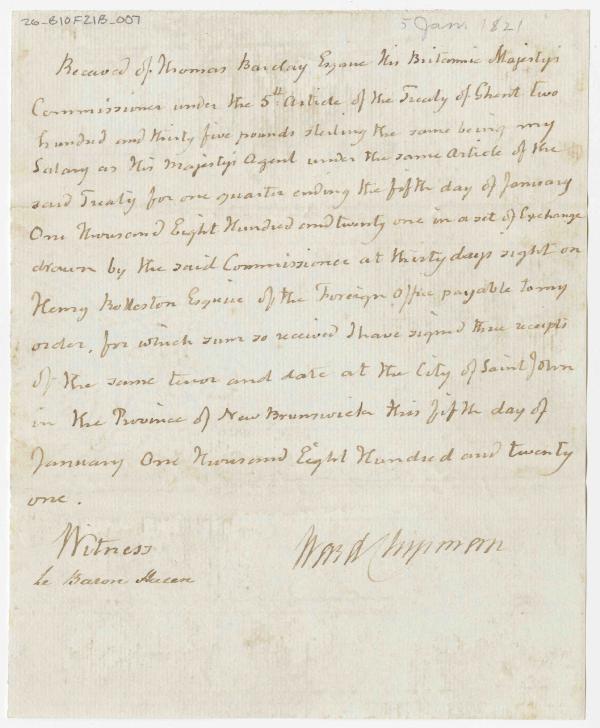 26_B10F21B_007
5 Jan. 1821
Received of Thomas Barclay Esquire His Britannic Majesty's
Commissioner under the 5th Article of the Treaty of Ghent two
hundred and thirty five pounds sterling the same being my
Salary as His Majesty's Agent under the same Article of the
said Treaty for one quarter ending the fifth day of January
One thousand Eight Hundred and twenty one in a set of Exchange
drawn by the said Commissioner at thirty days sight on
Henry Rolleston Esquire of the Foreign Office payable to my
order, for which sum so received I have signed three receipts
of the same tenor and date at the City of Saint John
in the Province of New Brunswick this fifth day of
January One thousand Eight Hundred and twenty
one.
Witness
Ward Chipman
le Baron Hazen